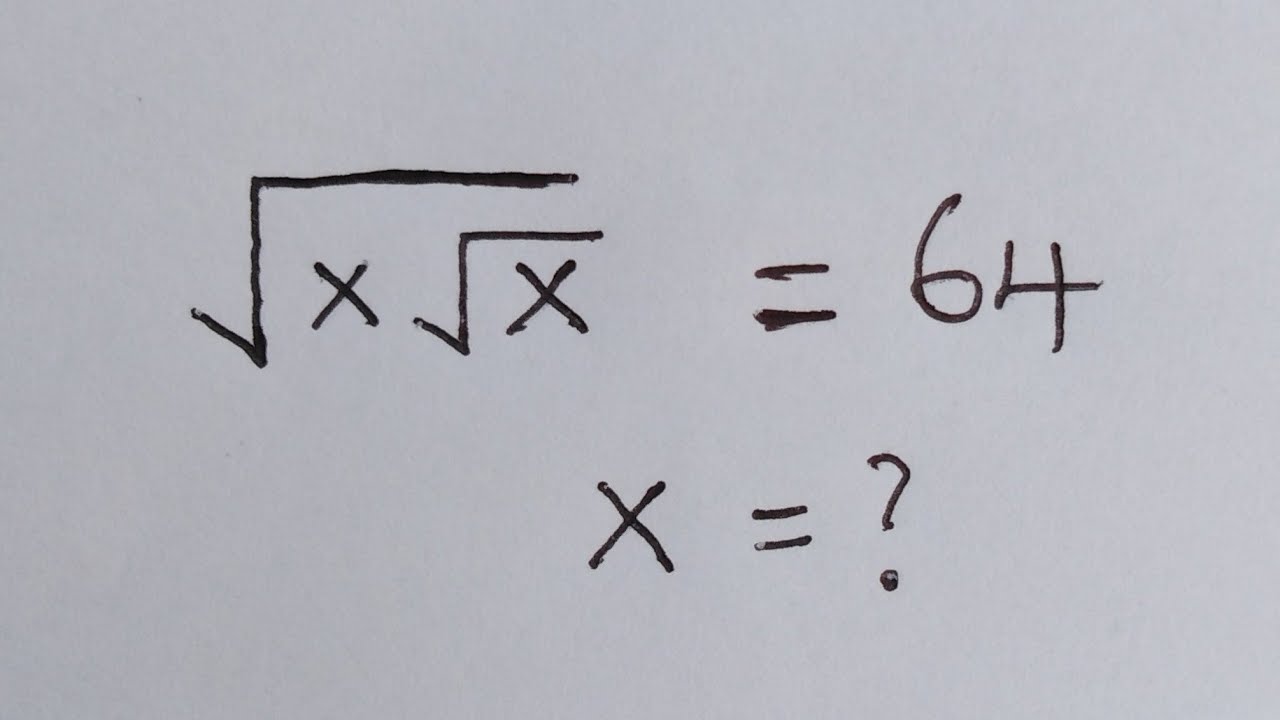 √x√x = 64
x = ?